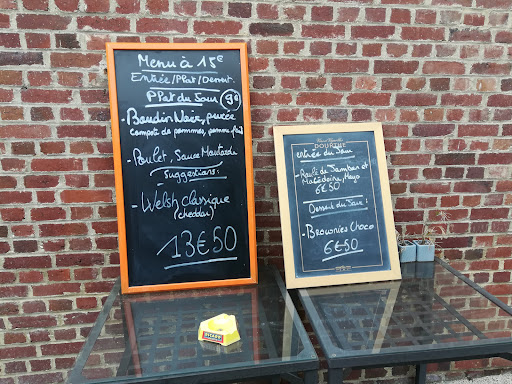 Menu à 15€
Entrée/Plat/Dessert
Plat du Jour 9€
- Boudin Noir, purée
Compote de pommes,
- Poulet, Sauce Moutarde
Suggestions:
- Welsh classique
(cheddar)
13€50
DOURTHE
entrée du Jour
- Roulé de Jambon et
Macédoine, Mayo
6€50
Dessert du Jour:
- Brownies Choco
6€50